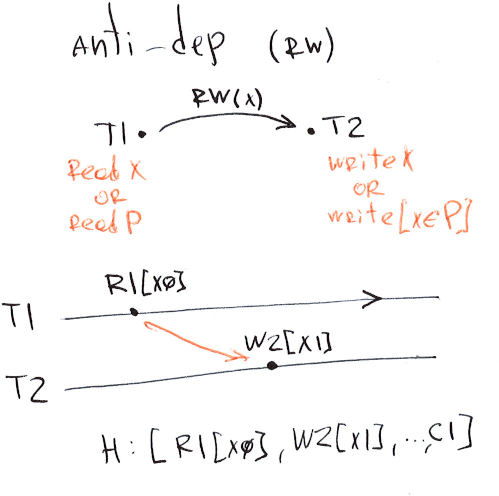 Anti-dep (RW)
RW(X)
T1 T2
Read X
OR
Read P
write X
OR
write[x∈P]
R1[X0]
T1
W2[X1]
T2
H: [R1[X0], W2[X1], ..., C1]